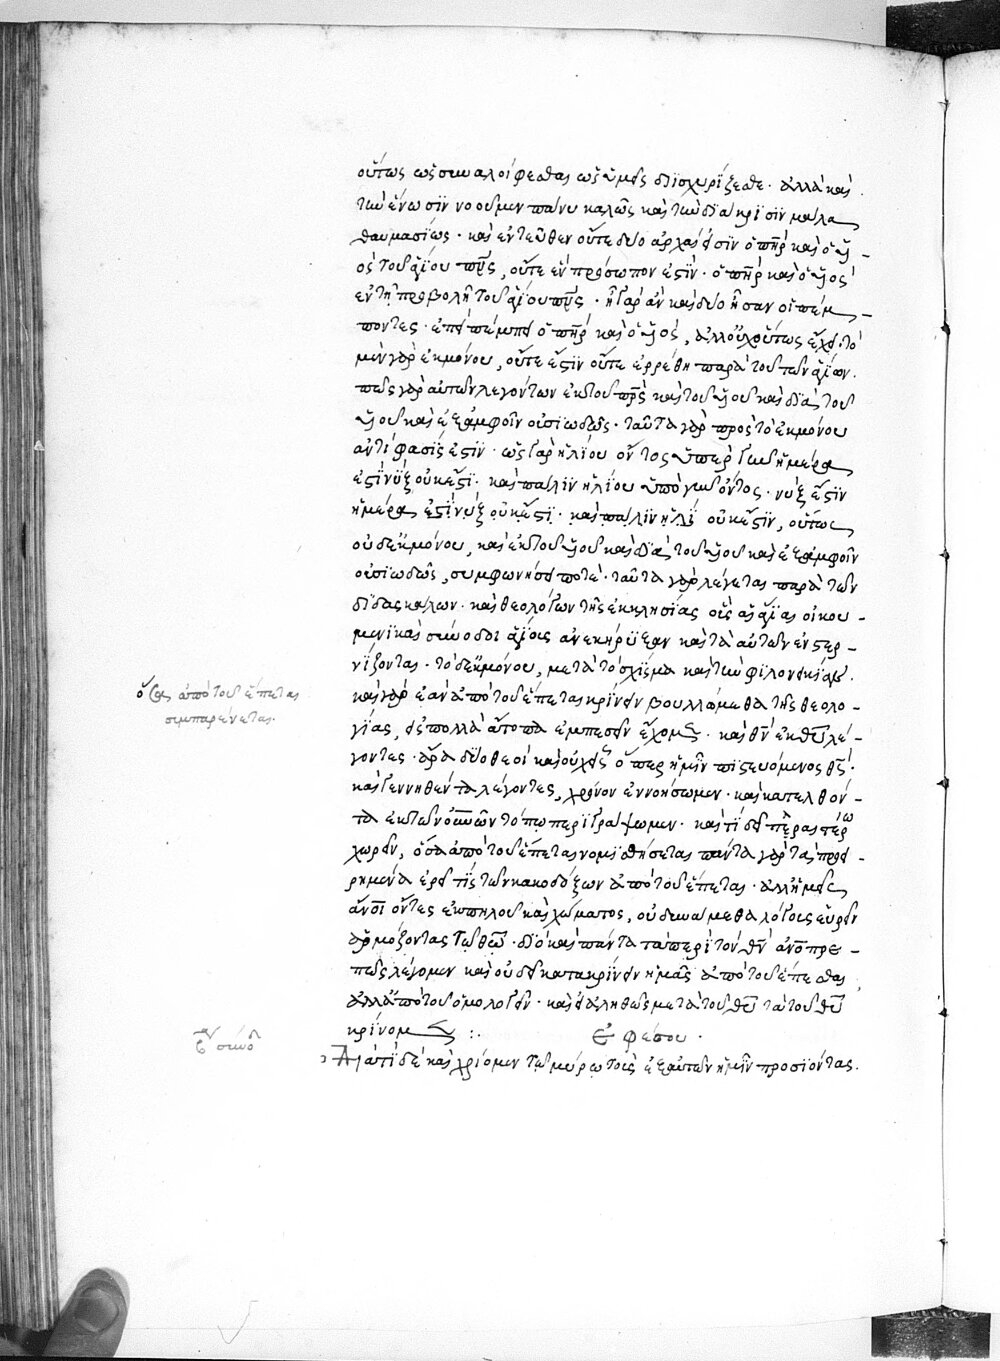 οὕτως ὡς συναλοίφεσθαι ὡς ὑμεῖς διϊσχυρίζεσθε· ἀλλὰ καὶ
τὴν ἕνωσϊν νοοῦμεν πάνυ καλῶς καὶ τὴν δϊάκρϊσϊν μάλα
θαυμασίως· καὶ ἐντεῦθεν οὔτε δύο ἀρχαὶ εἰσϊν ὁ πηρ καὶ ὁ υἱ-
ὸς τοῦ ἁγίου πνς, οὔτε ἓν πρόσωπον ἐστϊν· ὁ πηρ καὶ ὁ υἱὸς
ἐν τῇ προβολῇ τοῦ ἁγίου πνς· ἢ γὰρ ἂν καὶ δύο ἦσαν οἱ πέμ-
ποντες· ἐπεὶ πέμπει ὁ πηρ καὶ ὁ υἱός, ἀλλ' οὐχ οὕτως ἔχει· τὸ
μὲν γὰρ ἐκ μόνου, οὔτε ἐστϊν οὔτε ἐρρέθη παρὰ του τῶν ἁγίων.
πῶς γὰρ αὐτῶν λεγόντων ἐκ τοῦ πρς καὶ τοῦ υἱοῦ καὶ δϊὰ τοῦ
υἱοῦ καὶ ἐξ ἀμφοῖν οὐσϊωδῶς· ταῦτα γὰρ πρὸς τὸ ἐκ μόνου
ἀντίφασϊς ἐστϊν· ὡς γὰρ ἡλίου ὄντος ὑπὲρ γῆν ἡμέρα
ἐστϊ νὺξ οὐκ ἔστϊ· καὶ πάλϊν ἡλίου ὑπὸ γῆν ὄντος· νύξ ἐστϊν
ἡμέρα ἐστϊ νὺξ οὐκ ἔστϊ· καὶ πάλϊν ἡλϊ οὐκ ἔστϊν, οὕτως
οὐδὲ ἐκ μόνου, καὶ ἐκ τοῦ υἱοῦ καὶ δϊὰ τοῦ υἱοῦ καὶ ἐξ ἀμφοῖν
οὐσϊωδῶς, συμφωνήσει ποτέ· ταῦτα γὰρ λέγεται παρὰ τῶν
δϊδασκάλων· καὶ θεολόγων τῆς ἐκκλησϊας οἷς αἱ ἅγϊαι οἰκου-
μενϊκαὶ σύνοδοι ἁγϊοις ἀνεκήρυξαν καὶ τὰ αὐτῶν ἐνστερ-
νϊζονται· τὸ δὲ ἐκ μόνου, μετὰ τὸ σχϊσμα καὶ τὴν φϊλονεικίαν.
καὶ γὰρ ἐὰν ἀπὸ τοῦ ἕπεται κρίνειν βουλλώμεθα τῆς θεολο-
γίας, εἰς πολλὰ ἄτοπα ἐμπεσεῖν ἔχομεν· καὶ θν ἐκ θυ λέ-
γοντες· ἄρα δύο θεοὶ καὶ οὐχ εἷς ὅπερ ἡμῖν πϊστευόμενος θς·
καὶ γεννηθέντα λέγοντες, χρόνον ἐννοήσωμεν· καὶ κατελθόν-
τα ἐκ τῶν οὐνῶν τόπω περϊγράψωμεν· καὶ τί δεῖ περαιτέρω
χωρεῖν, ὅσα ἀπὸ τοῦ ἕπεται νομϊσθήσεται πάντα γὰρ τὰ προει-
ρημένα ἐρεῖ τϊς τῶν κακοδόξων ἀπὸ τοῦ ἕπεται· ἀλλ' ἡμεῖς
ἄνοι ὄντες ἐκ πηλοῦ καὶ χώματος, οὐ δυνάμεθα λόγοις εὑρεῖν
ἁρμόζοντας τῷ θῶ· δϊὸ καὶ πάντα τὰ περὶ τὸν θν ἀνοπρε-
πῶς λέγομεν καὶ οὐ δεῖ κατακρίνειν ἡμᾶς ἀπὸ τοῦ ἕπεσθαι
ἀλλ' ἀπὸ τοῦ ὁμολογεῖν· καὶ εἰ ἀληθῶς μετὰ τοῦ θυ τὰ τοῦ θυ
κρίνομεν :·
ἐφέσου·
Διατί δὲ καὶ χρίομεν τῷ μύρῳ τοὺς ἐξ αὐτῶν ἡμῖν προσϊόντας.
ὅσα ἀπὸ τοῦ ἕπεται
συμπεραίνεται·